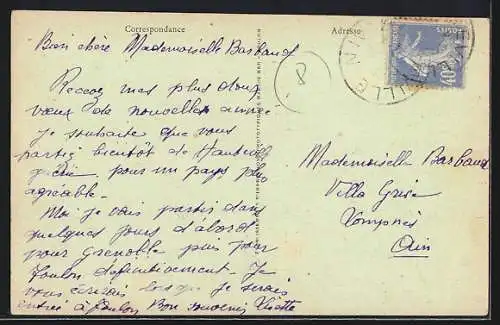 Correspondance
Adresse
Bien chère Mademoiselle Barbaud
8
Recevez mes plus doux
vœux de nouvelle année
je souhaite que vous
partiez bientôt de Hauteville
pour un pays plus
agréable.
Moi je vais partir dans
quelques jours d'abord
pour Grenoble puis pour
Toulon définitivement. Je
vous écrirai lorsque je serais
à Toulon Bon souvenir
Mademoiselle Barbaud
Villa Grise
Ain
POSTES
40